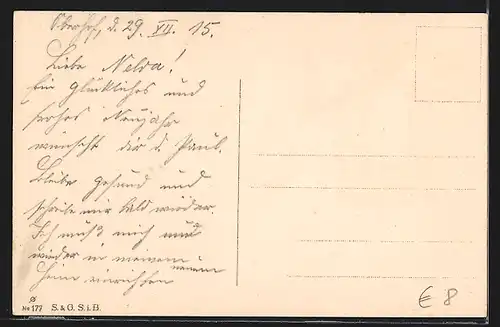 Oberhof, d. 29. XII. 15.
Liebe Nelda!
Ein glückliches und
frohes Neujahr
wünscht dir d. Paul.
Bleibe gesund und
schreibe mir bald wieder.
Ich muß mich nun
wieder in meinem
neuen
Heim einrichten
№ 177 S. & G. S. i. B.
€ 8